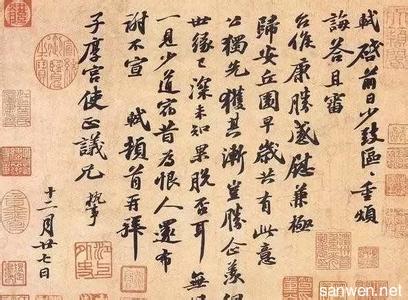 軾啟前日少致區〻重煩
誨答且審
台候康勝感慰兼極
歸安丘園早歲共有此意
公獨先獲其漸豈勝企羨但
世緣已深未知果脫否耳無緣
一見少道宿昔為恨人還布
謝不宣 軾頓首再拜
子厚宮使正議兄 執事
十二月廿七日
散文网
sanwen.net